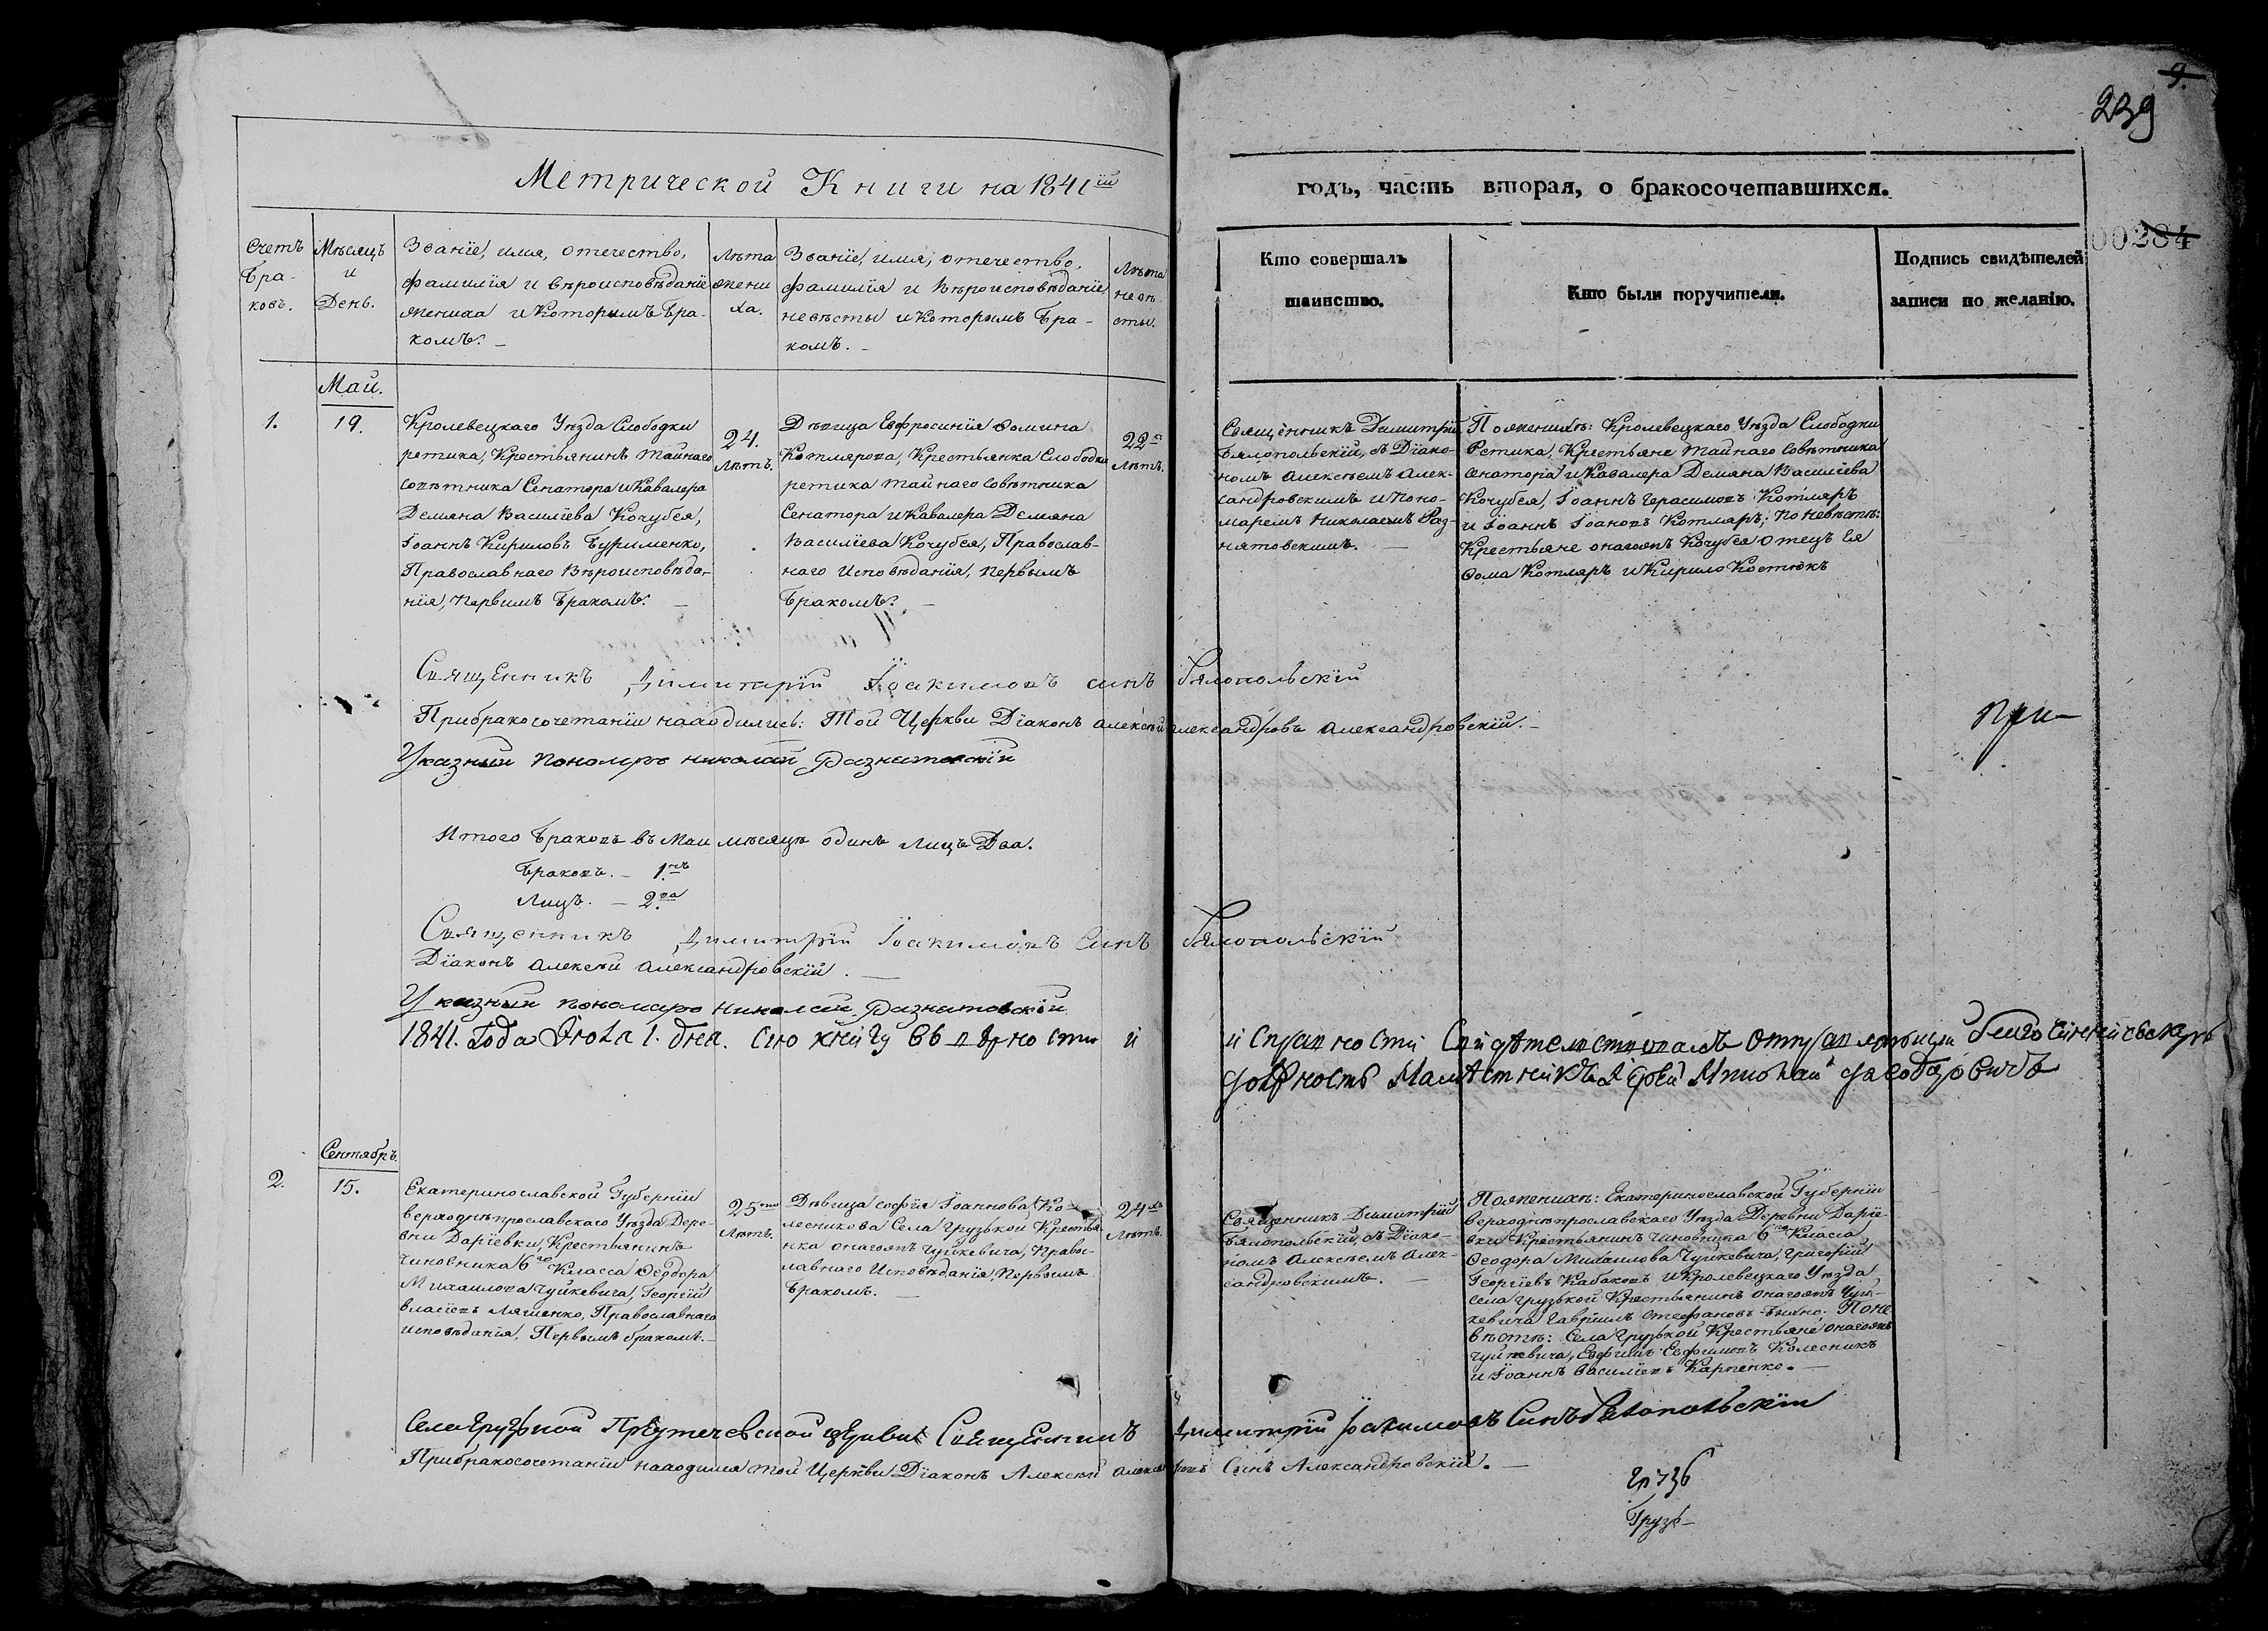 9.
239
00284
Метрической Книги на 1841ій
годъ, часть вторая, о бракосочетавшихся.
Счетъ
Бра-
ковъ.
Мѣсяцъ
и
День.
Званіе, имя, отечество,
фамилія и вѣроисповѣданіе
жениха и Которымъ Бра-
комъ. –
Лѣта
жени
ха.
Званіе, имя, отечество,
фамилія и Вѣроисповѣданіе
невѣсты и Которымъ Бра-
комъ. –
Лѣта
невѣ-
сты.
Кто совершалъ
таинство.
Кто были поручители.
Подпись свидѣтелей
записи по желанію.
Маи.
1.
19.
Кролевецкаго Уѣзда Слободки
ретика, Крестьянинъ Тайнаго
совѣтника Сенатора и Кавалера
Демяна Василіева Кочубея,
Іоаннъ Кириловъ Бурименко,
Православнаго Вѣроисповѣда-
нія, Первимъ Бракомъ. –
24.
Лѣтъ.
Дѣвица Евфросинія Ѳомина
Котлярова, Крестьянка Слободки
ретика тайнаго Совѣтника
Сенатора и Кавалера Демяна
Василіева Кочубея, Православ-
наго Исповѣданія, Первымъ
Бракомъ. –
22а
Лѣтъ.
Священникъ Димитрій
Бялопольскій, съ Діако-
номъ Алексѣемъ Алек-
сандровскимъ и Поно-
маремъ Николаемъ Раз-
нятовскимъ. –
По женихѣ: Кролевецкаго Уѣзда Слободки
Ретика, Крестьяне Тайнаго Совѣтника
Сенатора и Кавалера Демяна Василіева
Кочубея, Іоаннъ Герасимовъ Котляръ
и Іоаннъ Іоановъ Котляръ; По невѣстѣ:
Крестьяне онагожъ Кочубея отецъ Ея
Ѳома Котляръ и Кирило Костюкъ
Священникъ Димитрій Іоакимовъ синъ Бялопольскій
При бракосочетаніи находились: Той Церкви Діаконъ Алексѣй Александровъ Александровскій. –
при-
Указный Пономаръ Николай Разнатовскій
Итого Браковъ въ Маи мѣсяцѣ одинъ Лицъ Два.
Браковъ. – 1нъ
Лицъ. – 2ва
Священникъ Димитрій Іоакимовъ Синъ Бялопольскій
Діаконъ Алексѣй Александровскій. –
Указный Пономаръ Николай Разнатовскій
1841. Года Іюля 1. дня. Сію книгу въ вѣрности и и справности Свидѣтелствовалъ отправляющій благочинническую
должность Намѣстникъ Іерей
Сентябрь.
2.
15.
Екатеринославской Губерніи
верходнѣпровскаго Уѣзда Дере-
вни Даріевки, Крестьянинъ
Чиновника 6го Класса Ѳеодора
Михаилова Чуйкевича, Георгій
власіевъ Ляшенко, Православнаго
исповѣданія, Первымъ бракомъ. –
25ти
Лѣтъ.
Дѣвица Софія Іоаннова Ко-
лесникова Села Грузькой Крестья-
нка онагожъ Чуйкевича, Право-
славнаго Исповѣданія, Первымъ
Бракомъ. –
24
Лѣтъ.
Священникъ Димитрій
Бялопольскій, съ Діако-
номъ Алексѣемъ Алек-
сандровскимъ. –
По женихѣ: Екатеринославской Губерніи
верходнѣпровскаго Уѣзда Деревни Даріе-
вки Крестьянинъ Чиновника 6го Класса
Ѳеодора Михаилова Чуйкевича, Григорій
Георгіевъ Кабаковъ и Кролевецкаго Уѣзда
села Грузькой Крестьянинъ онагожъ Чуй-
кевича Гавріилъ Стефановъ. По не
вѣстѣ: Села Грузькой Крестьяне онагожъ
Чуйкевича, Евфимъ Евфимовъ Колесникъ
и Іоаннъ Василіевъ Карпенко. –
Села Грузкой Предтечевской Церкви Священникъ Димитрій Іоакимовъ Синъ Бялопольскій
При бракосочетаніи находился той Церкви Діаконъ Алексѣй Синъ Александровскій. –
Грузь-